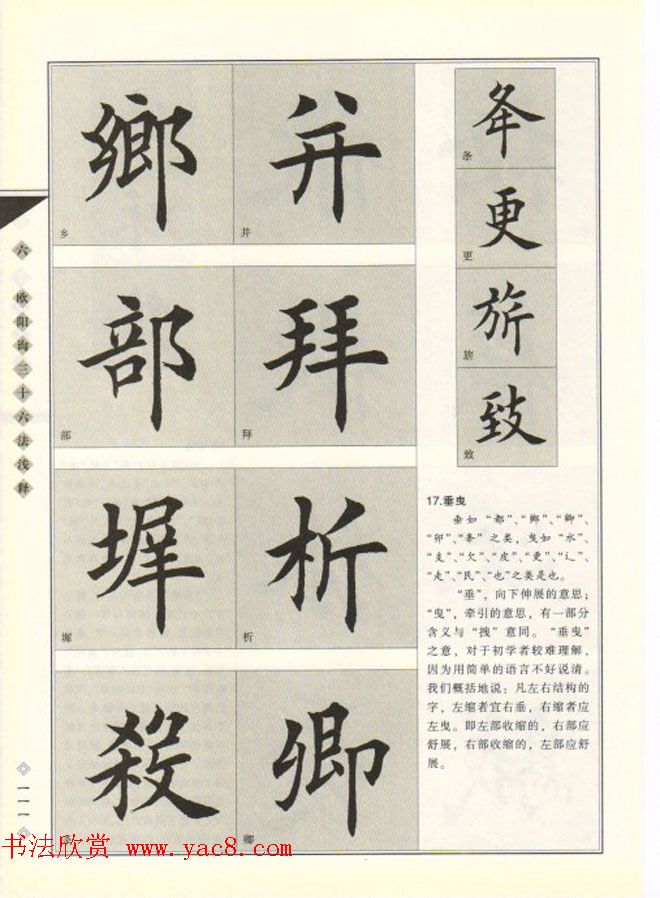 六 欧阳询三十六法浅释
鄉
乡
并
并
部
部
拜
拜
墀
墀
析
析
殺
卿
卿
条
条
更
更
旂
旂
致
致
17.垂曳
垂如“都”、“鄉”、“卿”、
“卯”、“夅”之类，曳如“水”、
“支”、“欠”、“皮”、“更”、“辶”、
“走”、“民”、“也”之类是也。
“垂”，向下伸展的意思；
“曳”，牵引的意思，有一部分
含义与“拽”意同。“垂曳”
之意，对于初学者较难理解，
因为用简单的语言不好说清。
我们概括地说：凡左右结构的
字，左缩者宜右垂，右缩者应
左曳。即左部收缩的，右部应
舒展，右部收缩的，左部应舒
展。
一一一
书法欣赏 www.yac8.com